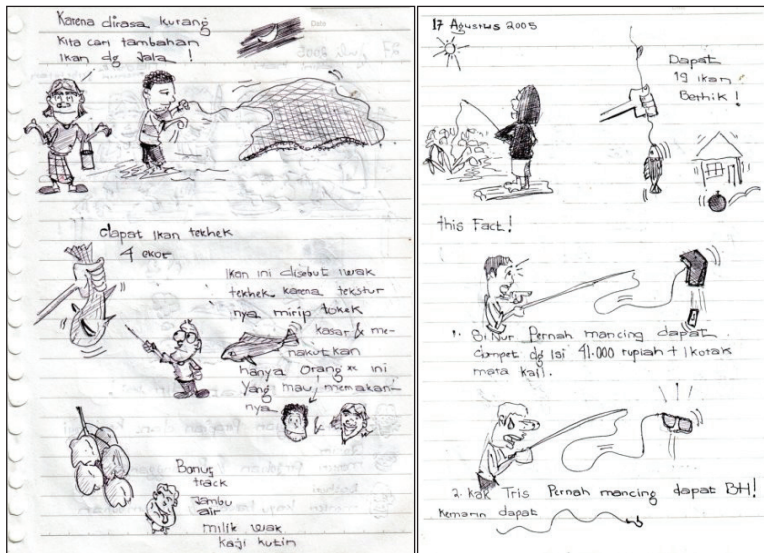 Karena dirasa kurang
Kita cari tambahan
Ikan dg Jala !
dapat Ikan tekhek
4 ekor
Ikan ini disebut iwak
tekhek karena tekstur
nya mirip tokek
kasar & me-
nakutkan
hanya orang" ini
Yang mau memakan
nya
&
Bonus
track
Jambu
air
milik wak
kaji kutin
17 Agustus 2005
Dapat
19 ikan
Bethik !
this Fact!
1. Si Nur Pernah mancing dapat
dompet dg isi 41.000 rupiah + 1 kotak
mata kail.
2. kak Tris Pernah mancing dapat BH!
Kemarin dapat